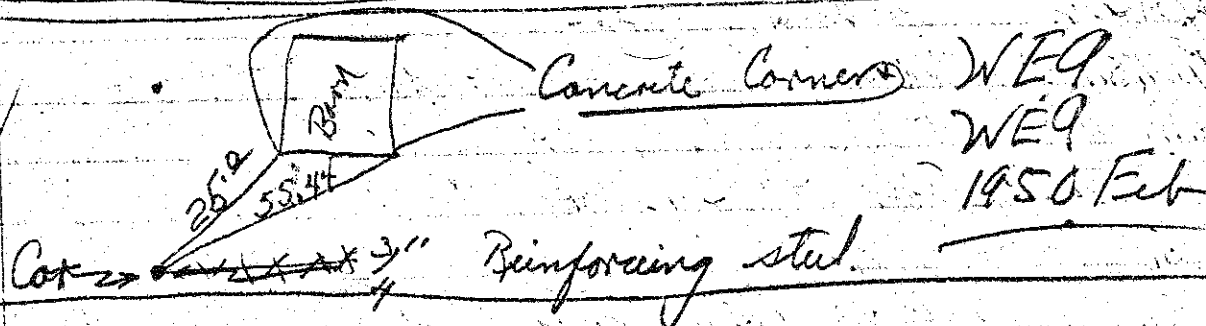 Barn
Concrete Corners
WE9
WE9
1950 Feb
55.44
Cor
3/4" Reinforcing steel.